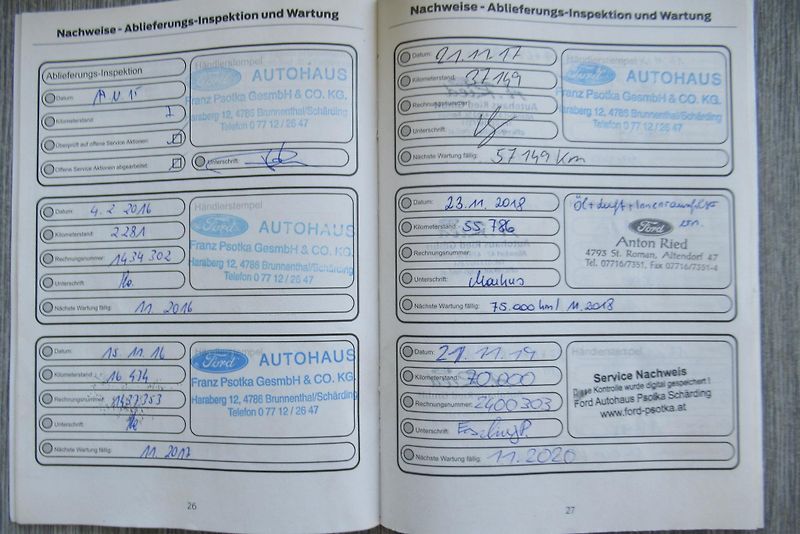 Nachweise - Ablieferungs-Inspektion und Wartung
Ablieferungs-Inspektion
Datum:
Kilometerstand:
Überprüft auf offene Service Aktionen:
Offene Service Aktionen abgearbeitet:
Händlerstempel
Ford AUTOHAUS
Franz Psotka GesmbH & CO. KG.
Haraberg 12, 4786 Brunnenthal/Schärding
Telefon 0 77 12 / 26 47
Unterschrift:
Datum: 4. 2. 2016
Kilometerstand: 2281
Rechnungsnummer: 1434302
Unterschrift:
Nächste Wartung fällig: 11. 2016
Händlerstempel
Ford AUTOHAUS
Franz Psotka GesmbH & CO. KG.
Haraberg 12, 4786 Brunnenthal/Schärding
Telefon 0 77 12 / 26 47
Datum: 15. 11. 16
Kilometerstand: 16 474
Rechnungsnummer:
Unterschrift:
Nächste Wartung fällig: 11. 2017
Ford AUTOHAUS
Franz Psotka GesmbH & CO. KG.
Haraberg 12, 4786 Brunnenthal/Schärding
Telefon 0 77 12 / 26 47
26
Nachweise - Ablieferungs-Inspektion und Wartung
Datum: 21.11.17
Kilometerstand: 37149
Rechnungsnummer:
Unterschrift:
Nächste Wartung fällig: 57149 Km
Ford AUTOHAUS
Franz Psotka GesmbH & CO. KG.
Haraberg 12, 4786 Brunnenthal/Schärding
Telefon 0 77 12 / 26 47
Datum: 23. 11. 2018
Kilometerstand: 55.786
Rechnungsnummer:
Unterschrift: Markus
Nächste Wartung fällig: 75.000 km / 11.2018
Öl + Luft + Innenraumfilter
Ford
Anton Ried
4793 St. Roman, Altendorf 47
Tel. 07716/7351, Fax 07716/7351-4
Datum: 21. 11. 19
Kilometerstand: 70.000
Rechnungsnummer: 2400303
Unterschrift:
Nächste Wartung fällig: 11. 2020
Händlerstempel
Service Nachweis
Diese Kontrolle wurde digital gespeichert !
Ford Autohaus Psotka Schärding
www.ford-psotka.at
27